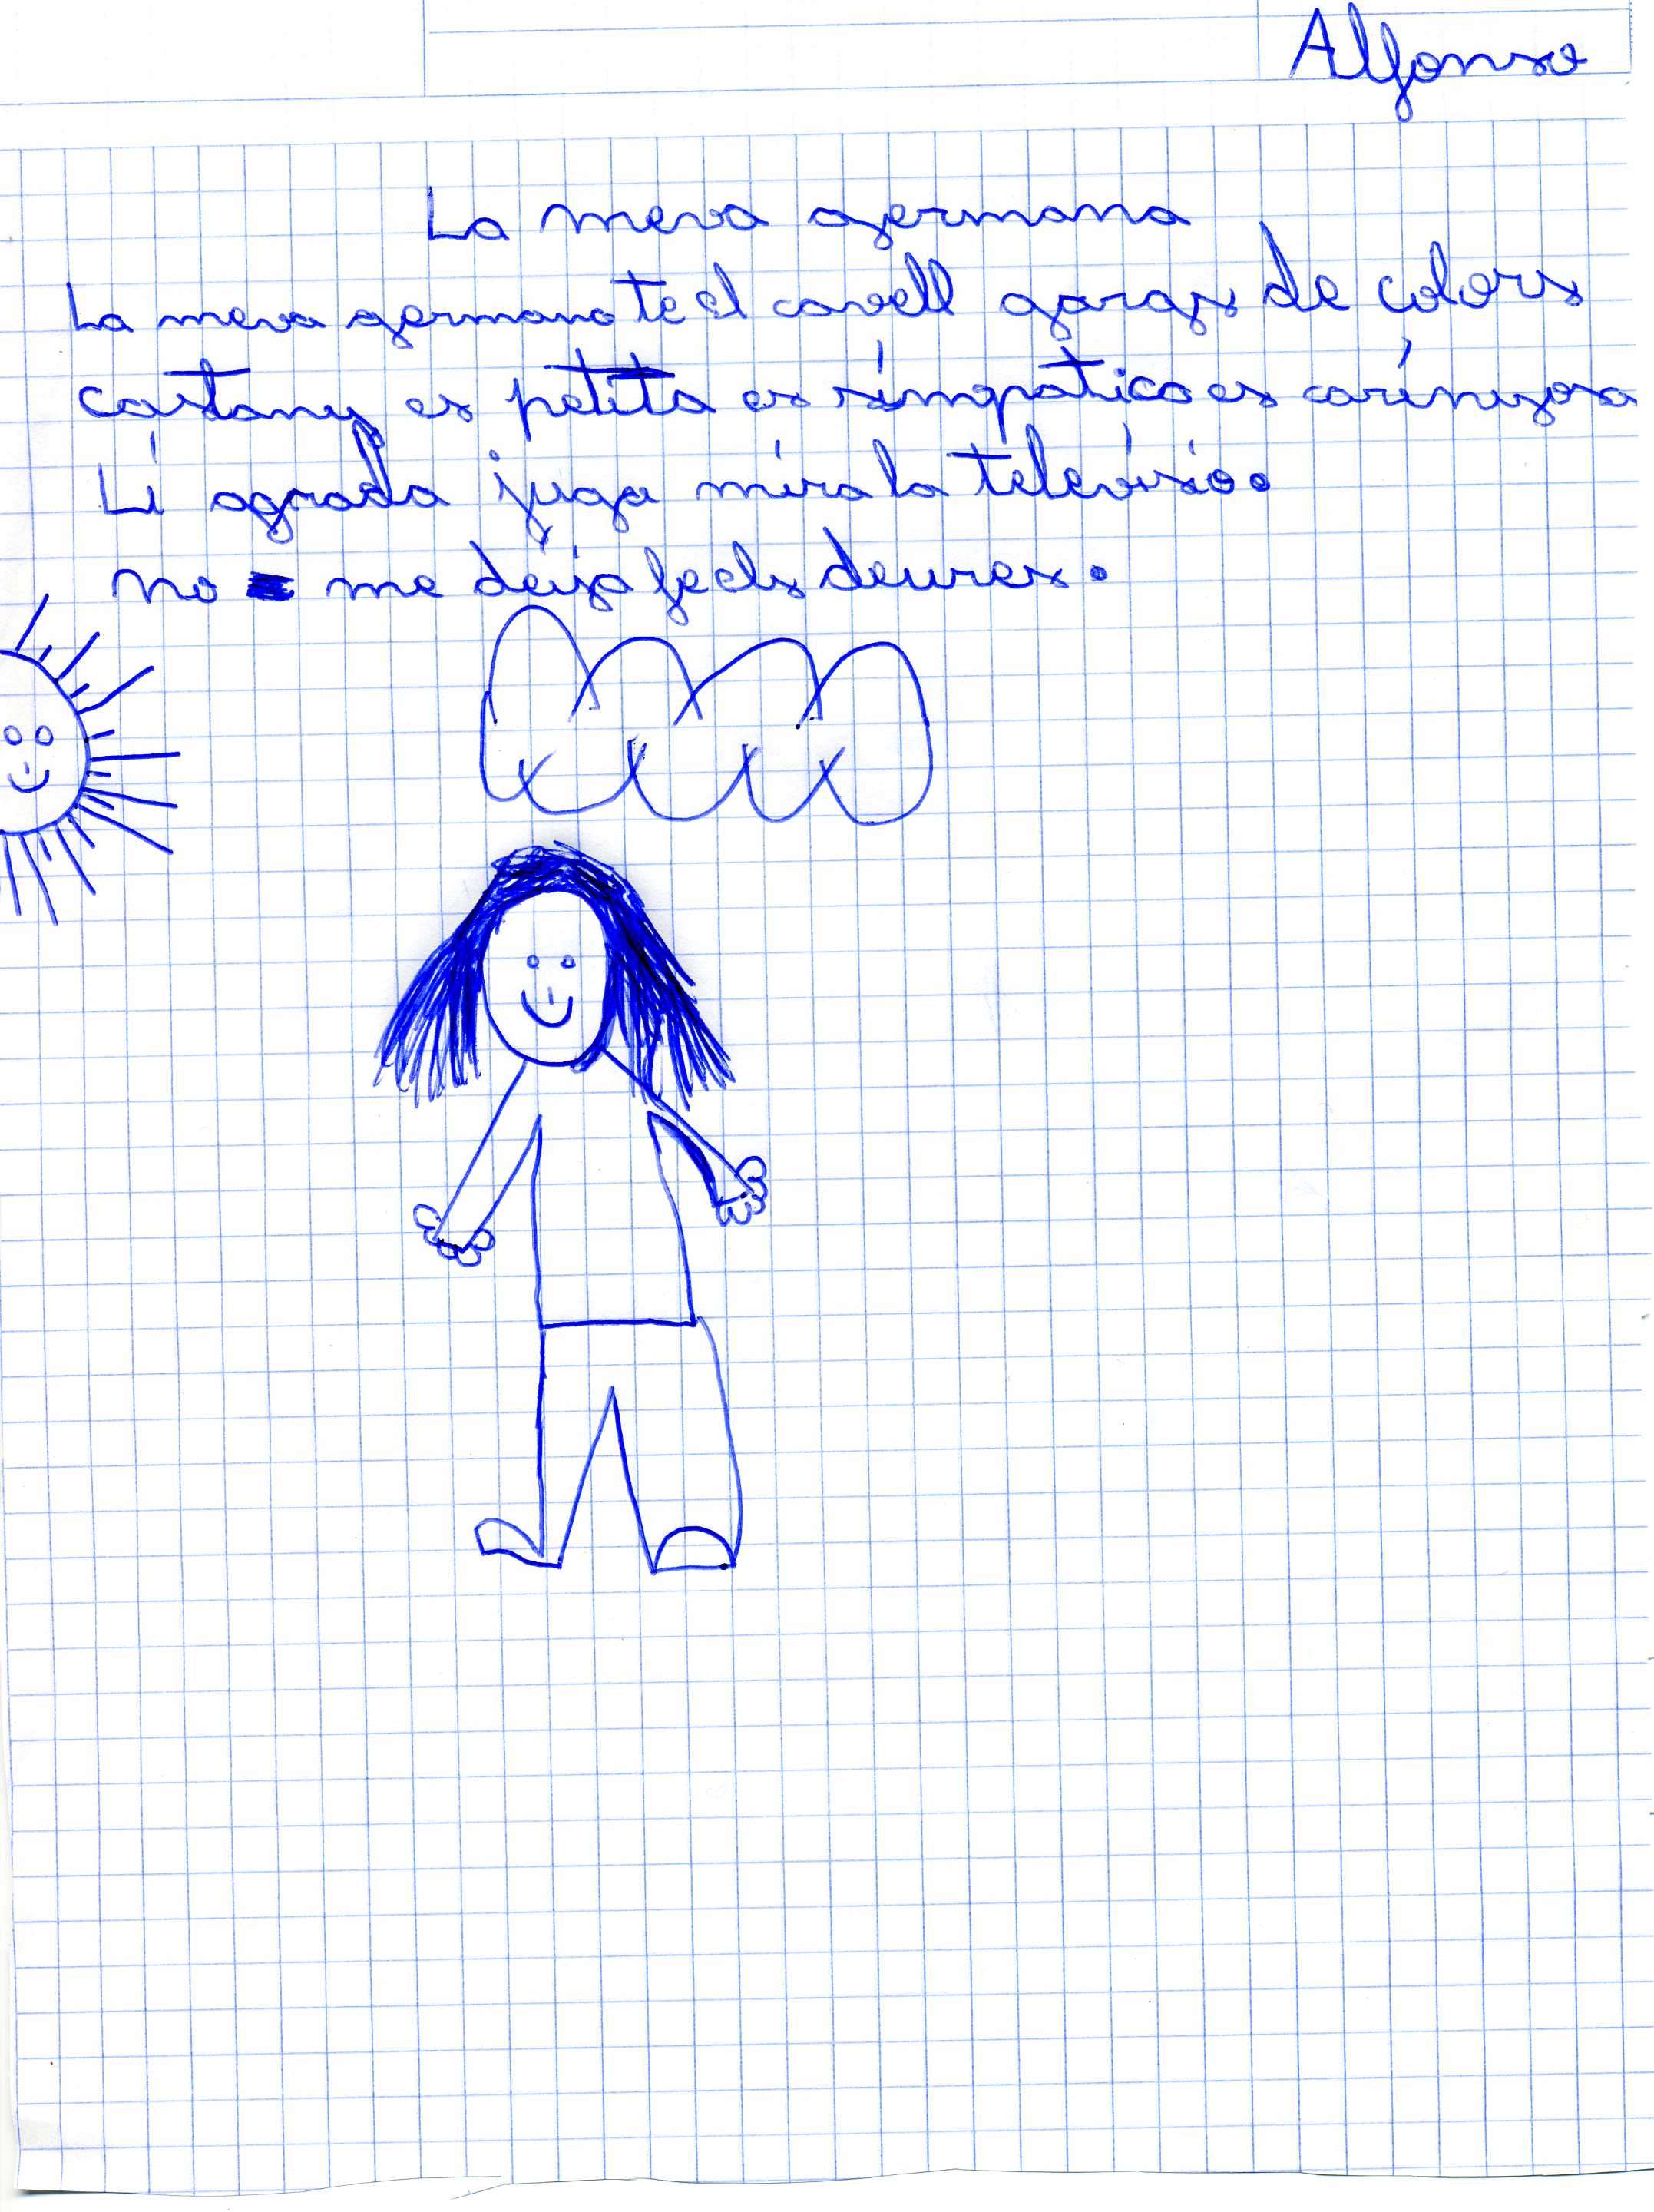 Alfonso
La meva germana
La meva germana te el cavell gargs de colors
castany es petita es simpatica es carinyosa
Li agrada juga mira la televisio.
no me deija fe els deures.